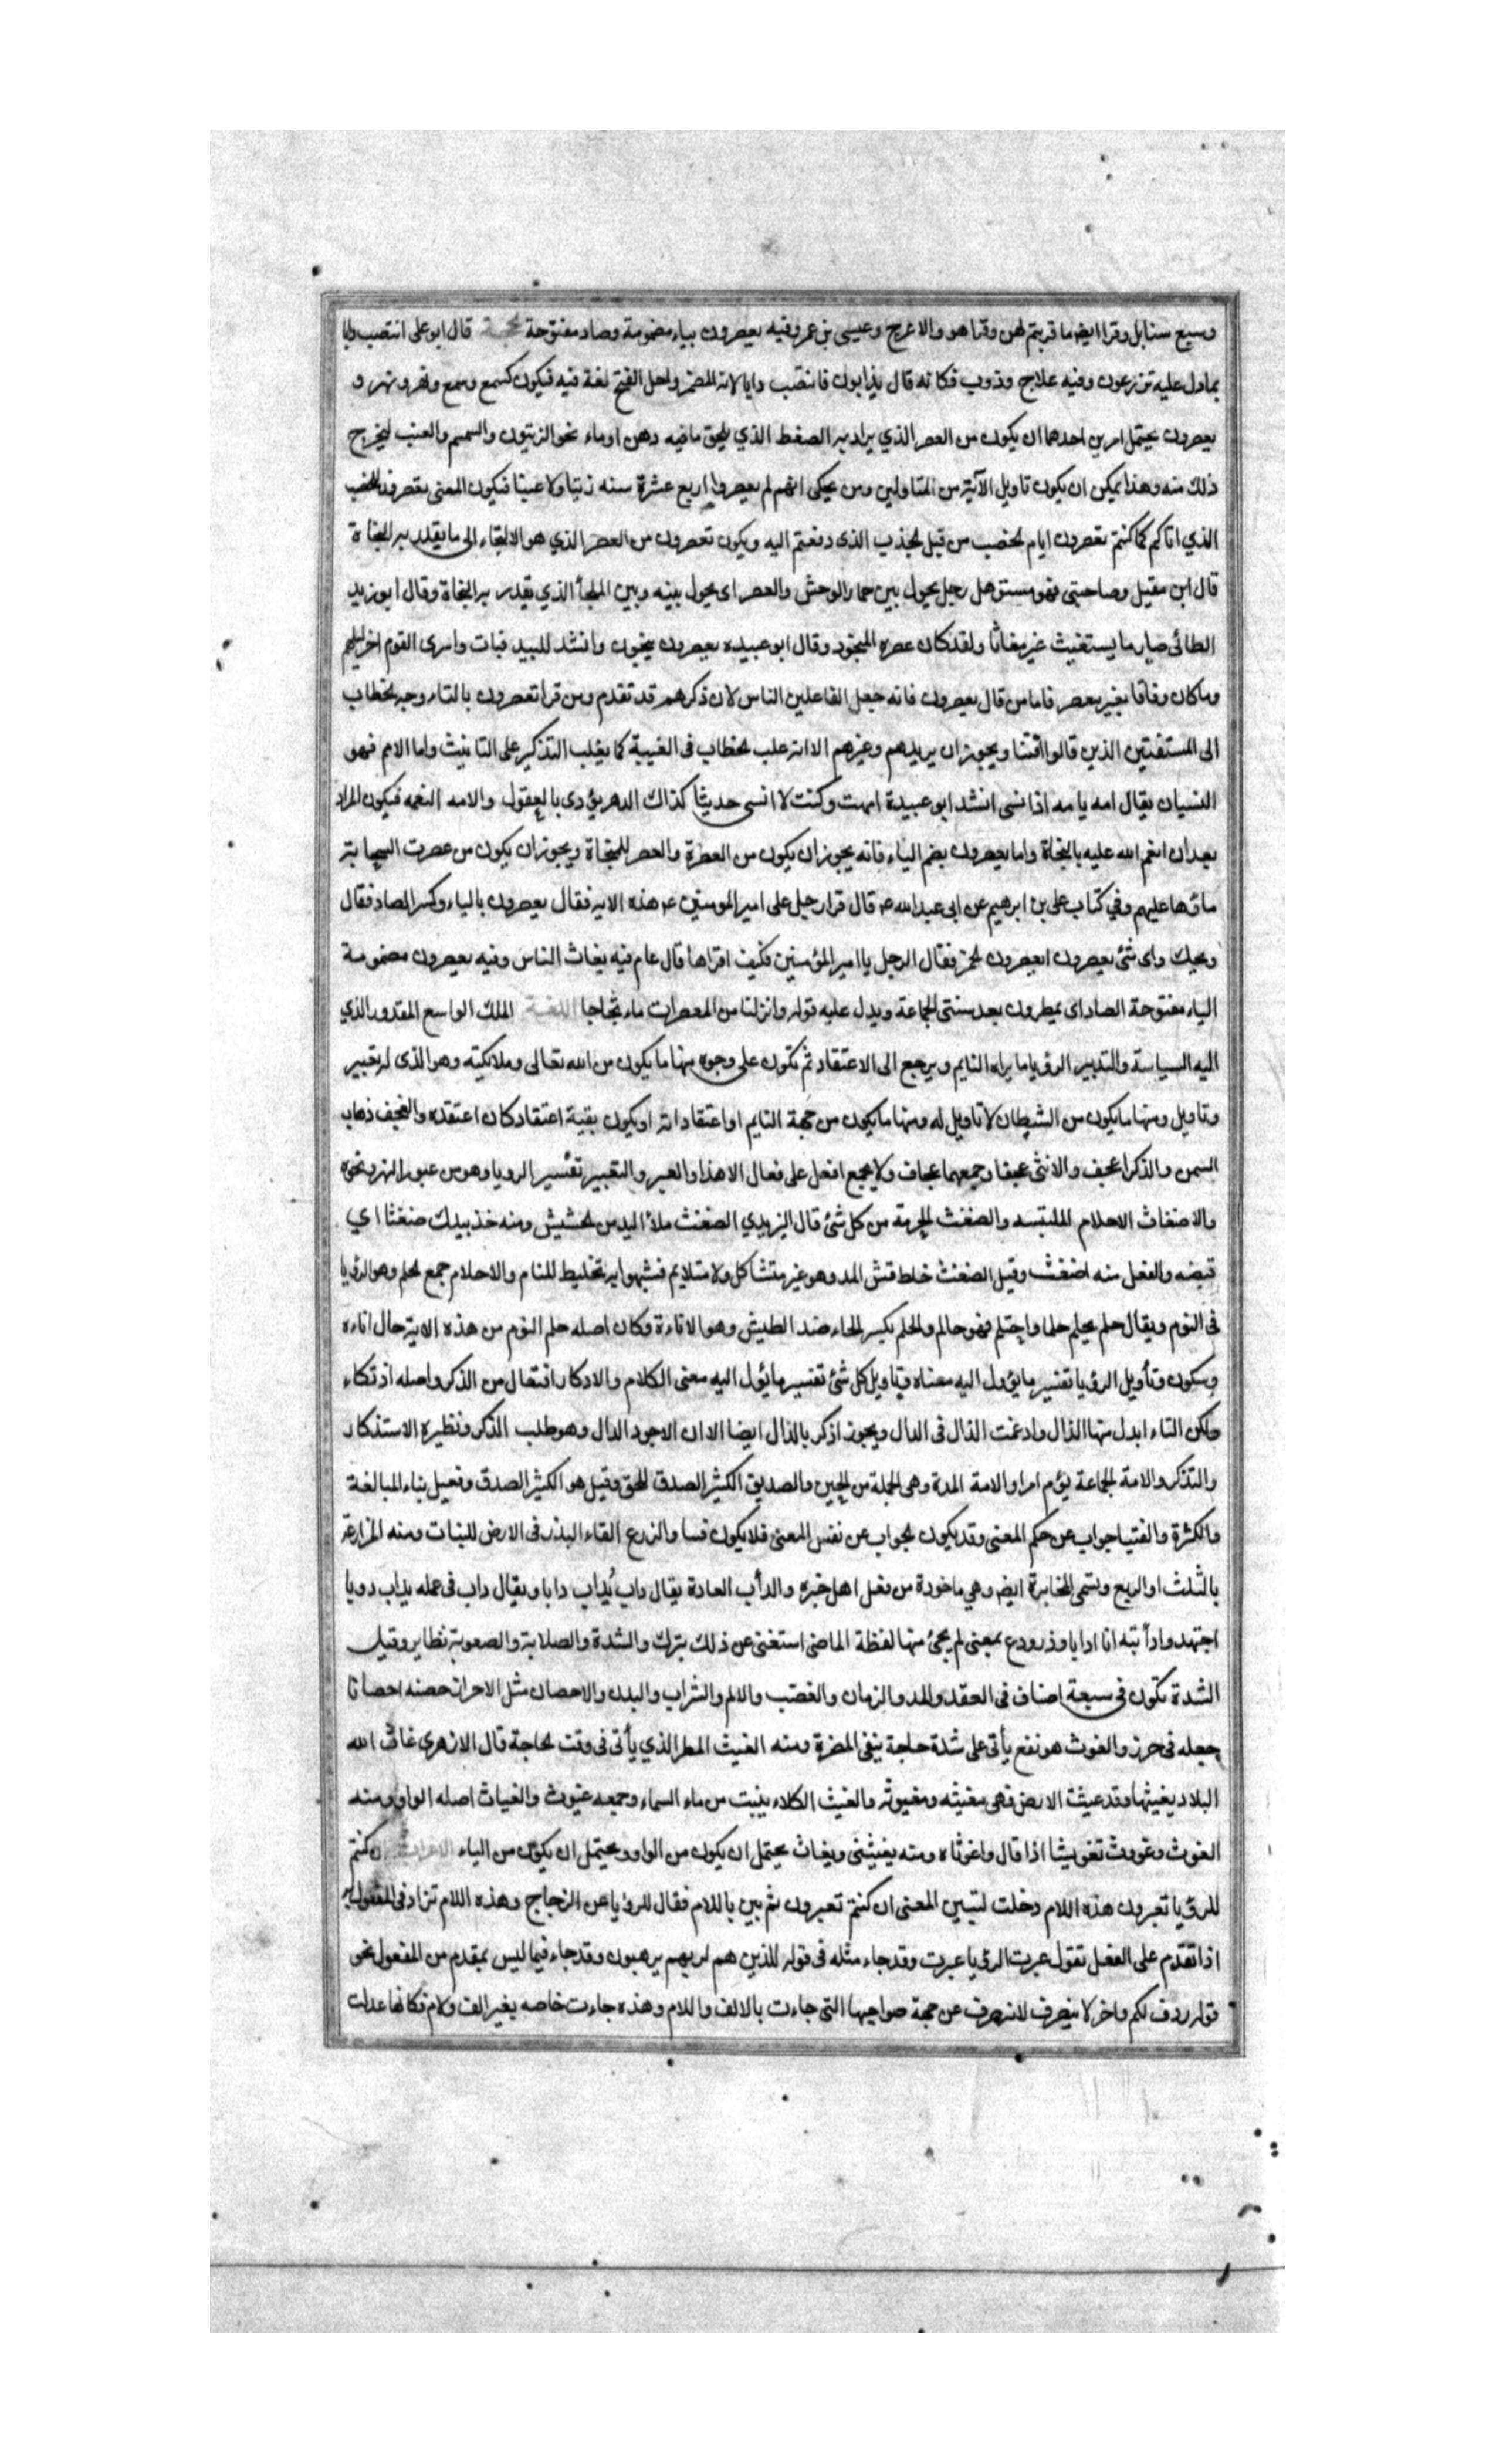 وسبع سنابل وقرا ايضا ما قربتم لهن وقرا هو والاعرج وعيسى بن عمر وفيه يعصرون بياء مضمومة وصاد مفتوحة الحجة قال ابو على انتصب دابا
بما دل عليه تزرعون وفيه علاج ودؤب فكانه قال يدابون فانتصب دابا لانه المضمر ولعل الفتح لغة فيه فيكون كشمع وشمع ونهر ونهر و
يعصرون يحتمل امرين احدهما ان يكون من العصر الذي يراد به الضغط الذي يلحق ما فيه دهن او ماء نحو الزيتون والسمسم والعنب ليخرج
ذلك منه وهذا يمكن ان يكون تاويل الآية من المتاولين ومن يحكى انهم لم يعصروا اربع عشرة سنه زيتا ولا عنبا فيكون المعنى يعصرون للخصب
الذي اتاكم كما كنتم تعصرون ايام الخصب من قبل الجدب الذى دفعتم اليه ويكون تعصرون من العصر الذي هو الالتجاء الى ما يقدر به النجاة
قال ابن مقبل وصاحبى فهو مستوهل رجل يحول بين حمار الوحش والعصر اى يحول بينه وبين الملجأ الذي يقدر به النجاة وقال ابو زبيد
الطائى صاريا يستغيث غير مغاثا ولقد كان عصره المنجود وقال ابو عبيده يعصرون ينجون وانشد للبيد فبات واسرى القوم اخر ليلهم
وما كان وقافا بغير يعصر فاما من قال يعصرون فانه جعل الفاعلين الناس لان ذكرهم قد تقدم ومن قرا تعصرون بالتاء وجه الخطاب
الى المستفتين الذين قالوا افتنا ويجوز ان يريدهم وغيرهم الا انه غلب الخطاب فى الغيبة كما يغلب التذكير على التانيث واما الامه فهو
النسيان يقال امه يامه اذا نسى انشد ابو عبيدة امهت وكنت لا انسى حديثا كذاك الدهر يودى بالعقول والامه النعمه فيكون المراد
بعد ان انعم الله عليه بالنجاة واما يعصرون بضم الياء فانه يجوز ان يكون من العصرة والعصر للنجاة ويجوز ان يكون من عصرت السحابة
ماؤها عليهم وفي كتاب على بن ابرهيم عن ابى عبد الله ع قال قرا رجل على امير المومنين ع هذه الاية فقال يعصرون بالياء وكسر الصاد فقال
ويحك واى شئ يعصرون ايعصرون الخمر فقال الرجل يا امير المؤمنين فكيف اقراها قال عام فيه يغاث الناس وفيه يعصرون مضمومة
الياء مفتوحة الصاد اى يمطرون بعد سنتى المجاعة ويدل عليه قوله وانزلنا من المعصرات ماء ثجاجا اللغة الملك الواسع المقدور الذي
اليه السياسة والتدبير الرؤيا ما يراه النايم ويرجع الى الاعتقاد ثم تكون على وجوه منها ما يكون من الله تعالى وملائكته وهو الذى له تعبير
وتاويل ومنها ما يكون من الشيطان لا تاويل له ومنها ما يكون من جهة النايم او اعتقاداته او يكون بقية اعتقاد كان اعتقده والعجف ذهاب
السمن والذكر اعجف والانثى عجفا وجمعهما عجاف ولا يجمع افعل على فعال الا هذا والعبر والتعبير تفسير الرويا وهو من عبور النهر ونحوه
والاضغاث الاحلام الملتبسه والضغث الحزمة من كل شئ قال اليزيدي الضغث ملأ اليد من الحشيش ومنه خذ بيدك ضغثا اي
قبضه والفعل منه اضغث وقيل الضغث خلط قش المد وهو غير متشاكل ولا متلايم فشبهوا به تخليط المنام والاحلام جمع الحلم وهو الرؤيا
فى النوم ويقال حلم يحلم حلما واحتلم فهو حالم والحلم بكسر الحاء ضد الطيش وهو الاناءة وكان اصله حلم النوم من هذه الاية حال اناءه
وسكون وتأويل الرؤيا تفسير ما يؤول اليه معناه وتاويل كل شئ تفسير ما يؤل اليه معنى الكلام والادكار افتعال من الذكر واصله اذتكاء
ولكن التاء ابدل منها الدال وادغمت الذال فى الدال ويجوز اذكر بالذال ايضا الا ان الاجود الدال وهو طلب الذكر ونظيره الاستذكار
والتذكر والامة الجماعة يؤم امرا والامة المدة وهى الجملة من الحين والصديق الكثير الصدق للحق وقيل هو الكثير الصدق وفعيل بناء المبالغة
والكثرة والفتيا جواب عن حكم المعنى وقد يكون الجواب عن نفس المعنى فلا يكون فتيا والزرع القاء البذر فى الارض للنبات ومنه المزارعة
بالثلث او الربع وتسمى المخابرة ايضا وهي ماخوذة من فعل اهل خيبر والدأب العادة يقال داب يداب دابا ويقال داب فى عمله يداب دوبا
اجتهد وادأبته انا ادابا وذر ودع بمعنى لم يجئ منها لفظة الماضى استغنى عن ذلك بترك والشدة والصلابة والصعوبة نظاير وقيل
الشدة تكون فى سبعة اصناف فى العقد والمد والزمان والغضب والالم والشراب والبدن والاحصان مثل الاحراز حصنه احصانا
جعله فى حرز والغوث هو نفع يأتى على شدة حاجة ينفى المضرة ومنه الغيث المطر الذي يأتى فى وقت الحاجة قال الازهرى غاث الله
البلاد يغيثها وقد غيثت الارض فهى مغيثه ومغيوثه والغيث الكلاء ينبت من ماء السماء وجمعه غيوث والغياث اصله الواو ومنه
الغوث وغوث تغويثا اذا قال واغوثاه ومنه يغيثنى ويغاث يحتمل ان يكون من الواو ويحتمل ان يكون من الياء الاعراب ان كنتم
للرؤيا تعبرون هذه اللام دخلت لتبين المعنى ان كنتم تعبرون ثم بين باللام فقال للرؤيا عن الزجاج وهذه اللام تزاد فى المفعول به
اذا تقدم على الفعل تقول عبرت الرؤيا عبرت وقد جاء مثله فى قوله للذين هم لربهم يرهبون وقد جاء فيما ليس بمقدم من المفعول نحو
قوله ردف لكم واخر لا ينصرف لانه صرف عن جهة صواحبها التى جاءت بالالف واللام وهذه جاءت خاصه بغير الف ولام فكانها عدلت